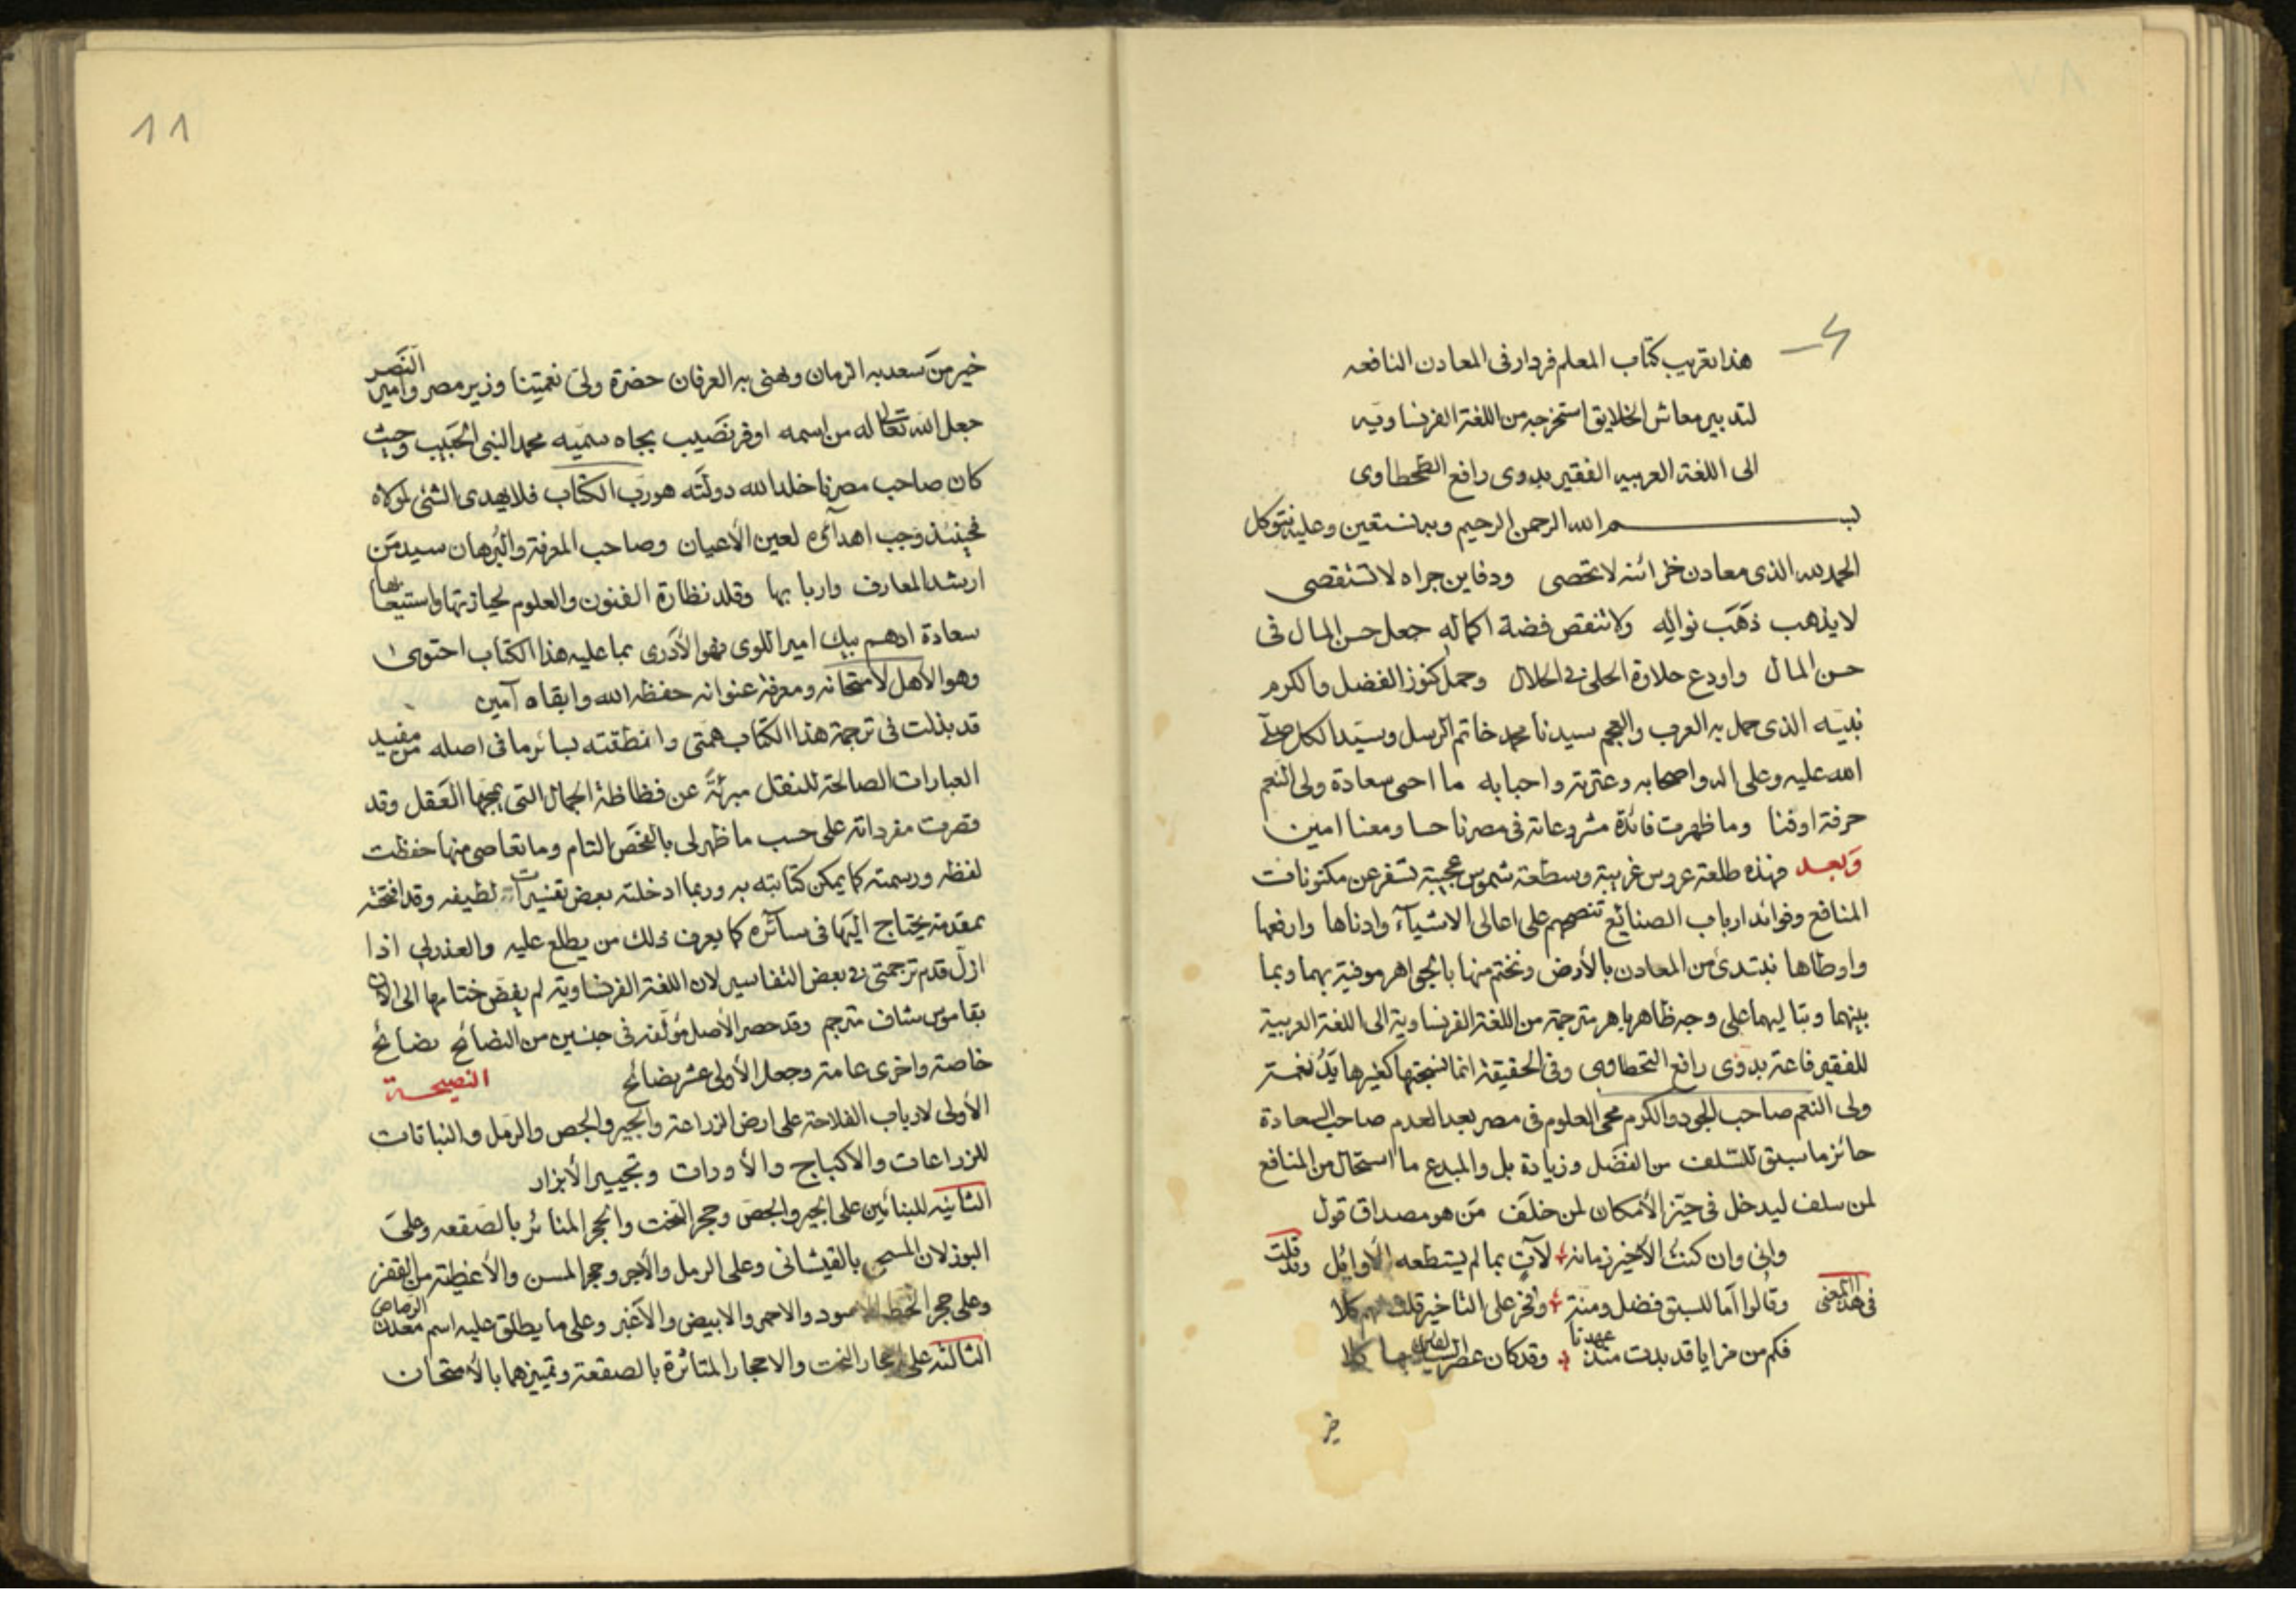 هذا تعريب كتاب المعلم فردار فى المعادن النافعه
لتدبير معاش الخلايق استخرجه من اللغة الفرنساويه
الى اللغة العربيه الفقير بدوى رافع الطحطاوى
بسم الله الرحمن الرحيم وبه نستعين وعليه نتوكل
الحمد لله الذى معادن خزائنه لا تحصى ودفاين جراه لا تستقصى
لا يذهب ذهب نواله ولا تنقص فضة اكماله جعل حسن المال فى
حسن المال واودع حلاوة الحلى فى الحلال وجمل كنوز الفضل والكرم
نبيه الذى جمل به العرب والعجم سيدنا محمد خاتم الرسل وسيد الكل صلى
الله عليه وعلى اله واصحابه وعترته واحبابه ما احى سعادة ولى النعم
حرفة اوفنا وما ظهرت فائدة مشروعاته فى مصرنا حسا ومعنا امين
وبعد فهذه طلعة عروس غريبة وسطعة شموس عجيبة تسفر عن مكنونات
المنافع وفوائد ارباب الصنايع تنصهم على اعالى الاشيآء وادناها وارفعها
واوطاها نبتدئ من المعادن بالأرض ونختم منها بالجواهر موفية بهما وبما
بينهما وبتاليهما على وجه ظاهر باهر مترجمة من اللغة الفرنساوية الى اللغة العربية
للفقير فاعته بدوى رافع التحطاوى وفى الحقيقة انما نتيجتها كغيرها يد نعمة
ولى النعم صاحب الجود والكرم محى العلوم فى مصر بعد العدم صاحب السعادة
حائز ما سبق للسلف من الفضل وزيادة بل والمبدع ما استحال من المنافع
لمن سلف ليدخل فى حيز الأمكان لمن خلف من هو مصداق قول
وانى وان كنت الأخير زمانه لآت بما لم يستطعه الأوايل وقد قلت
فى هذا المعنى وقالوا أما للسبق فضل ومنة وفخر على التاخير قلت لهم كلا
فكم من مزايا قد بدت منذ عهدنا وقد كان عصر السابقين بها كلا
خير
11
خير من سعد به الزمان وهنى به العرفان حضرة ولى نعمتنا وزير مصر وامير النصر
جعل الله تعالى له من اسمه اوفر نصيب بجاه سميه محمد النبى الحبيب وحيث
كان صاحب مصرنا خلد الله دولته هو رب الكتاب فلا يهدى الشئ لمولاه
فحينئذ وجب اهدائه لعين الأعيان وصاحب المعرفة والبرهان سيد من
ارشد المعارف واربابها وقلد نظارة الفنون والعلوم لحيازتها واستيعابها
سعادة ادهم بيك امير اللوى فهو الأدرى بما عليه هذا الكتاب احتوى
وهو الأهل لأمتحانه ومعرفة عنوانه حفظه الله وابقاه آمين
قد بذلت فى ترجمة هذا الكتاب همتى وانطقته بسائر ما فى اصله من مفيد
العبارات الصالحة للنقل مبرئة عن فظاظة الجمال التى يمجها العقل وقد
فسرت مفرداته على حسب ما ظهر لى بالفحص التام وما تعاصى منها حفظت
لفظه ورسمته كما يمكن كتابته به وربما ادخلته بعض تفسيرات لطيفه وقد افتحته
بمقدمة يحتاج اليها فى سآئره كما يعرف ذلك من يطلع عليه والعذر لى اذا
ازل قدم ترجمتى فى بعض التفاسير لان اللغة الفرنساوية لم يفض ختامها الى الأن
بقاموس شاف مترجم وقد حصر الأصل مؤلفه فى جنسين من النصائح نصائح
خاصة واخرى عامة وجعل الأولى عشر نصائح النصيحة
الأولى لارباب الفلاحة على ارض الزراعة والجير والجص والرمل والنباتات
للزراعات والاكباج والأورات وتجيير الأبزار
الثانيه للبنائين على الجير والجص وحجر النحت والحجر المتاثر بالصقعه وعلى
البوزلان المسمى بالقيشانى وعلى الرمل والأجر وحجر المسن والأغطية من القفر
وعلى حجر الخط الاسود والاحمر والابيض والأغبر وعلى ما يطلق عليه اسم معدن الرصاص
الثالثه على احجار النحت والاحجار المتاثرة بالصقعة وتمييزهما بالأمتحان